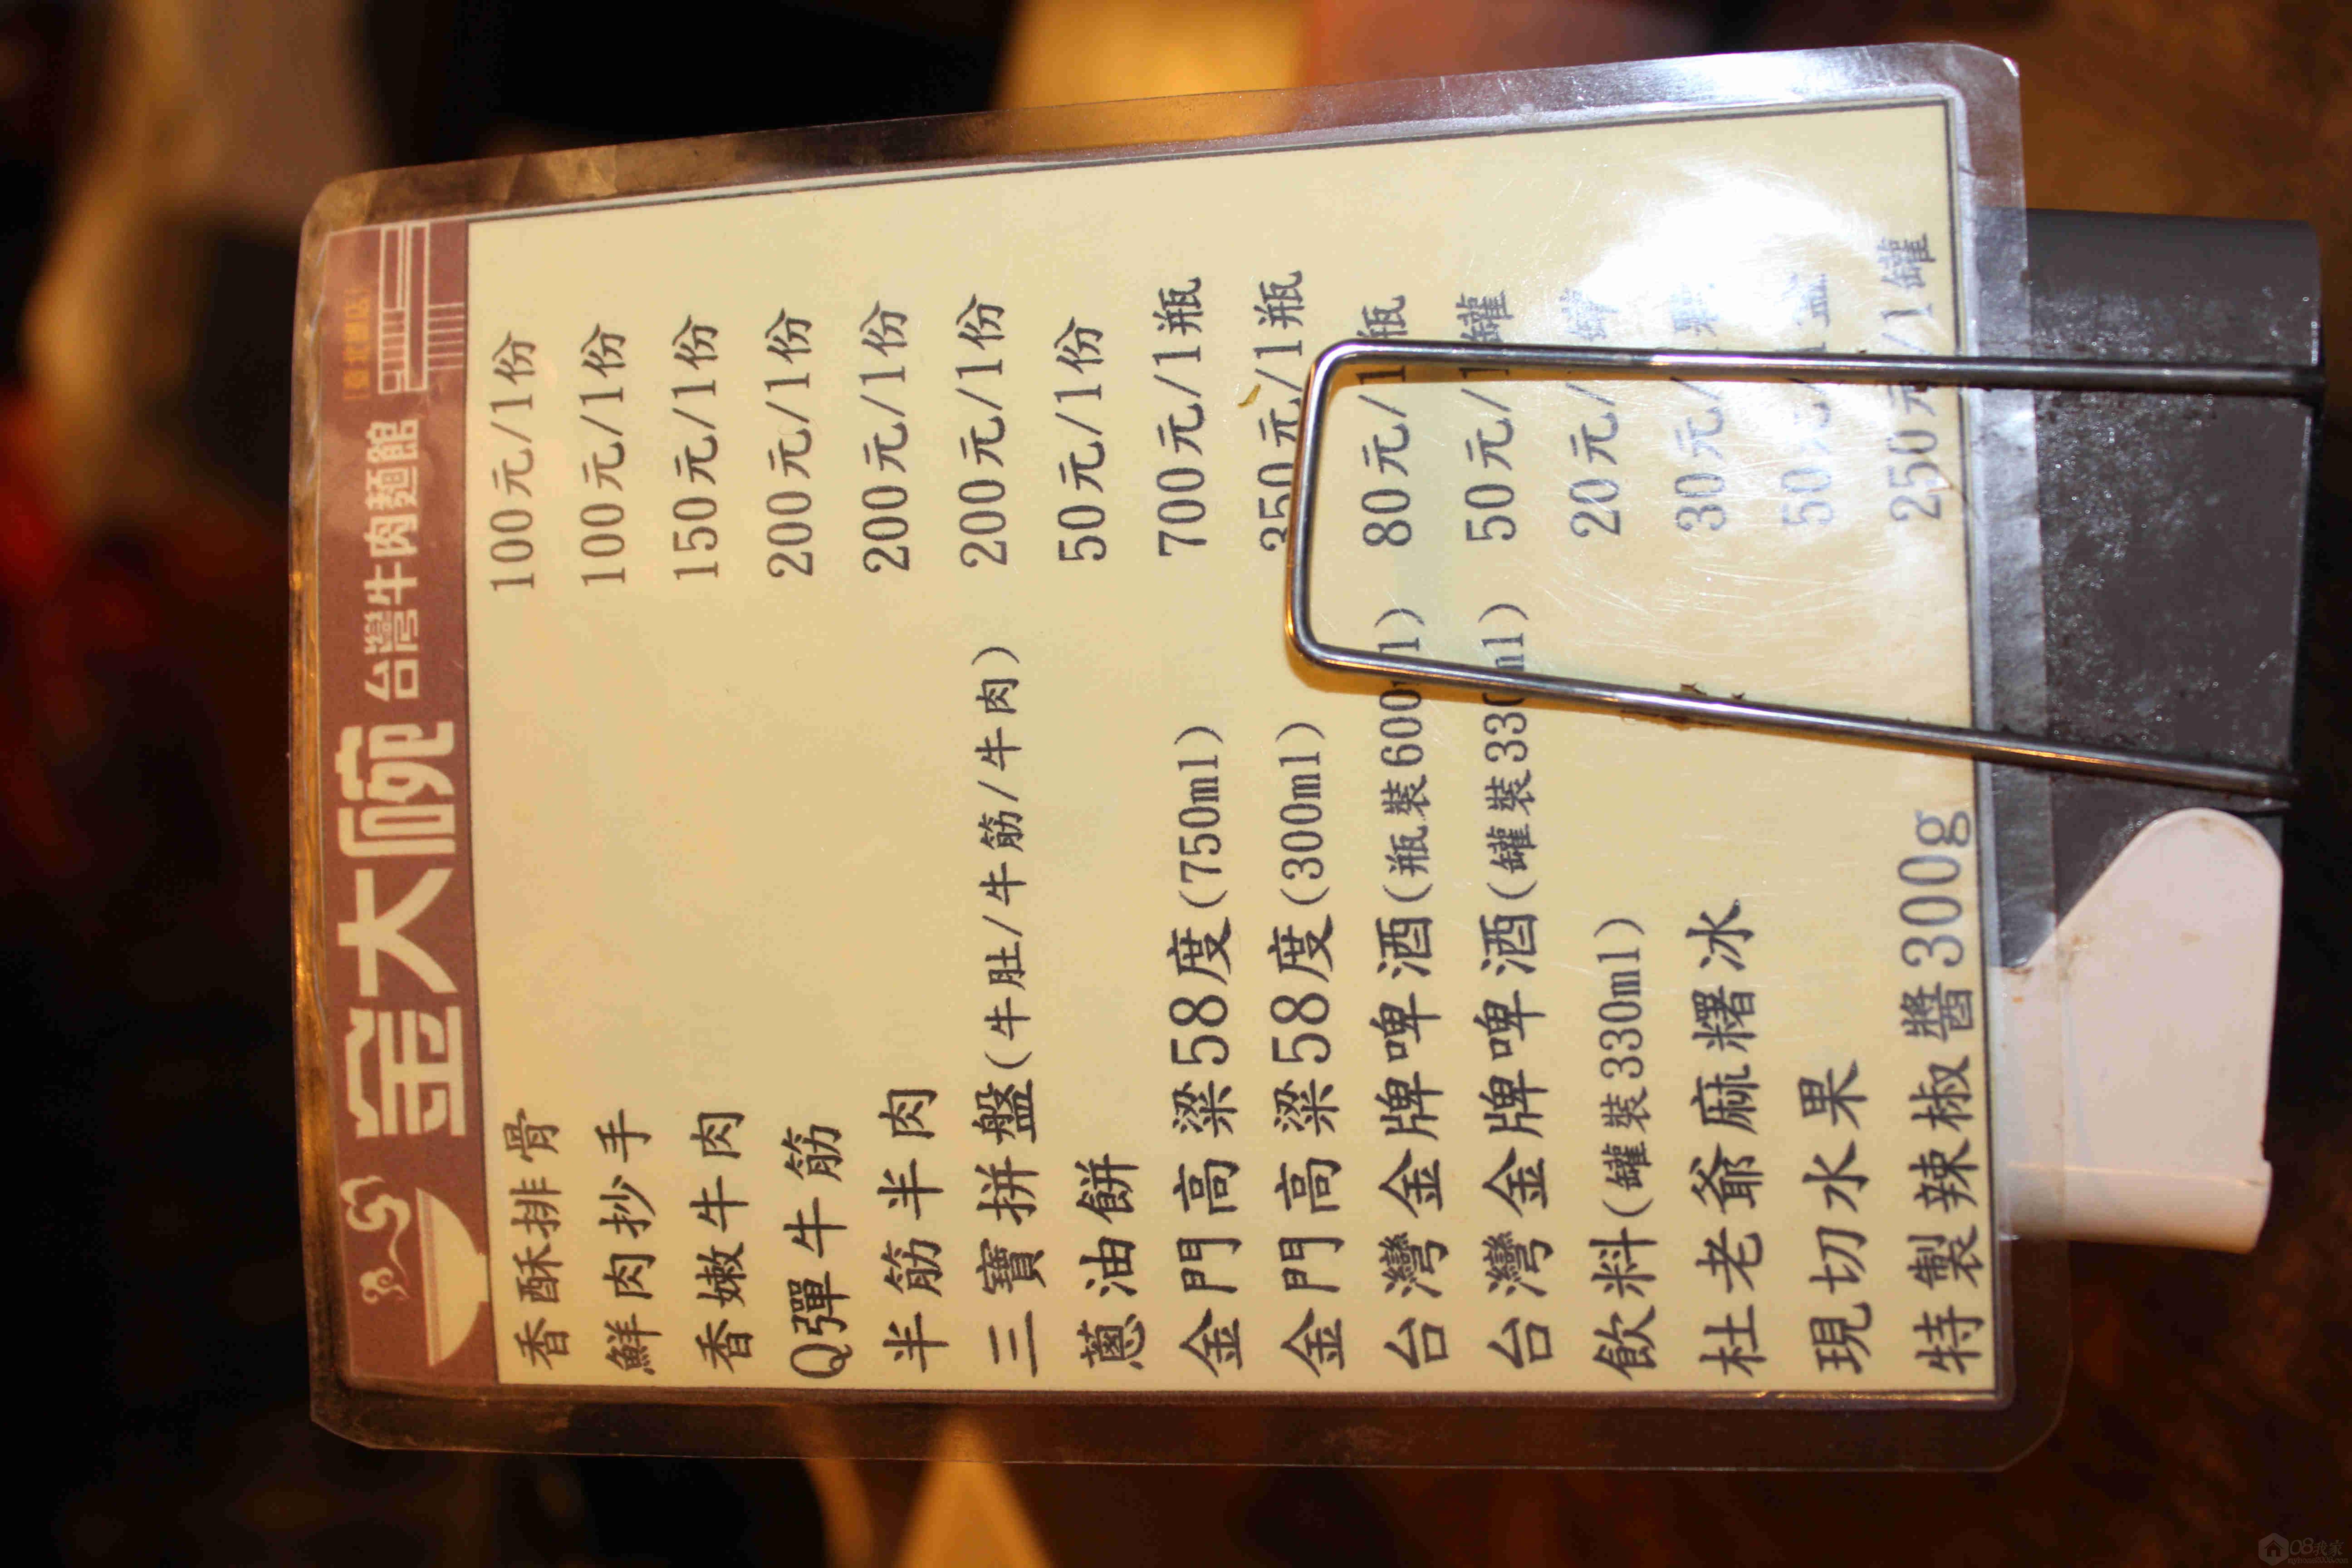 金大碗 台灣牛肉麵館
香酥排骨 100元/1份
鮮肉抄手 100元/1份
香嫩牛肉 150元/1份
Q彈牛筋 200元/1份
半筋半肉 200元/1份
三寶拼盤(牛肚/牛筋/牛肉) 200元/1份
蔥油餅 50元/1份
金門高粱58度(750ml) 700元/1瓶
金門高粱58度(300ml) 350元/1瓶
台灣金牌啤酒(瓶裝600ml) 80元/1瓶
台灣金牌啤酒(罐裝330ml) 50元/1罐
飲料(罐裝330ml) 20元/ 罐
杜老爺麻糬冰 30元/
現切水果 50元/ 盒
特製辣椒醬300g 250元/1罐
08我家